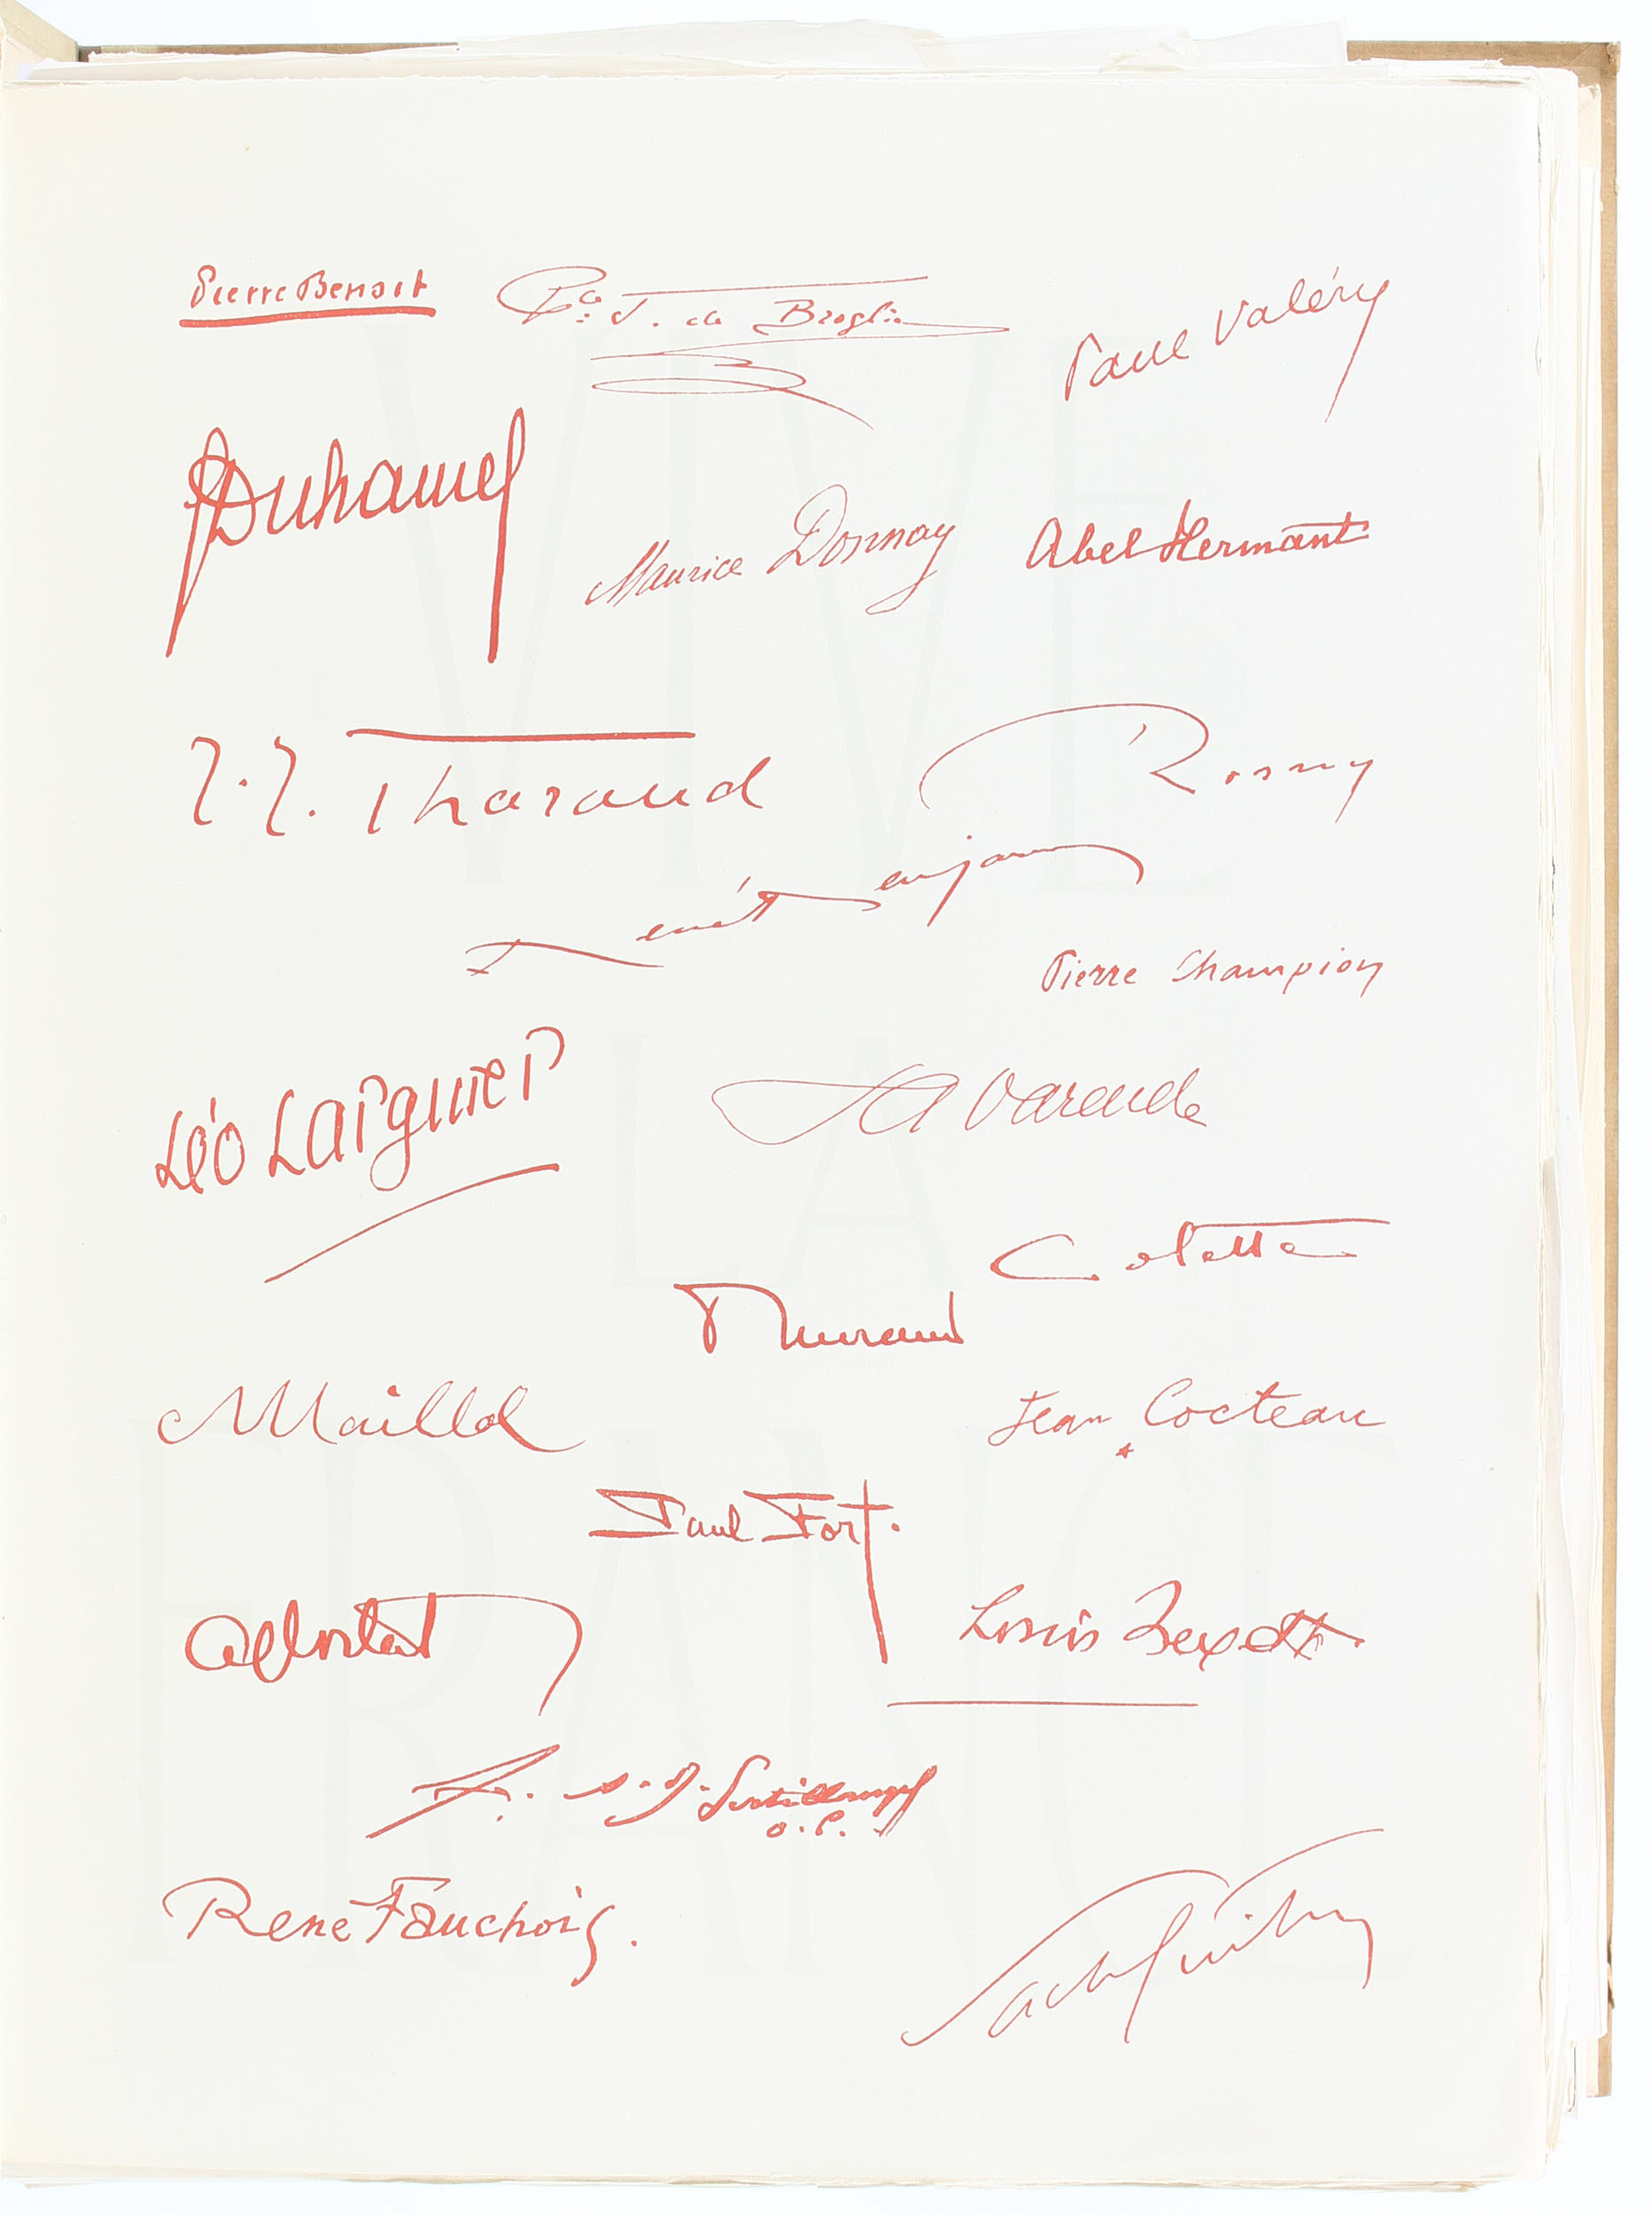 Pierre Benoit
Pce. J. de Broglie
Paul Valéry
GDuhamel
Maurice Donnay
Abel Hermant
J.-J. Tharaud
Rosny
René Benjamin
Pierre Champion
Léo Larguier
JdLVarende
Colette
PMorand
Maillol
Jean Cocteau
Paul Fort.
ACortot
Louis Beydts
F. A. D. Sertillanges
O. P.
René Fauchois.
Sacha Guitry
VIVE
LA
FRANCE